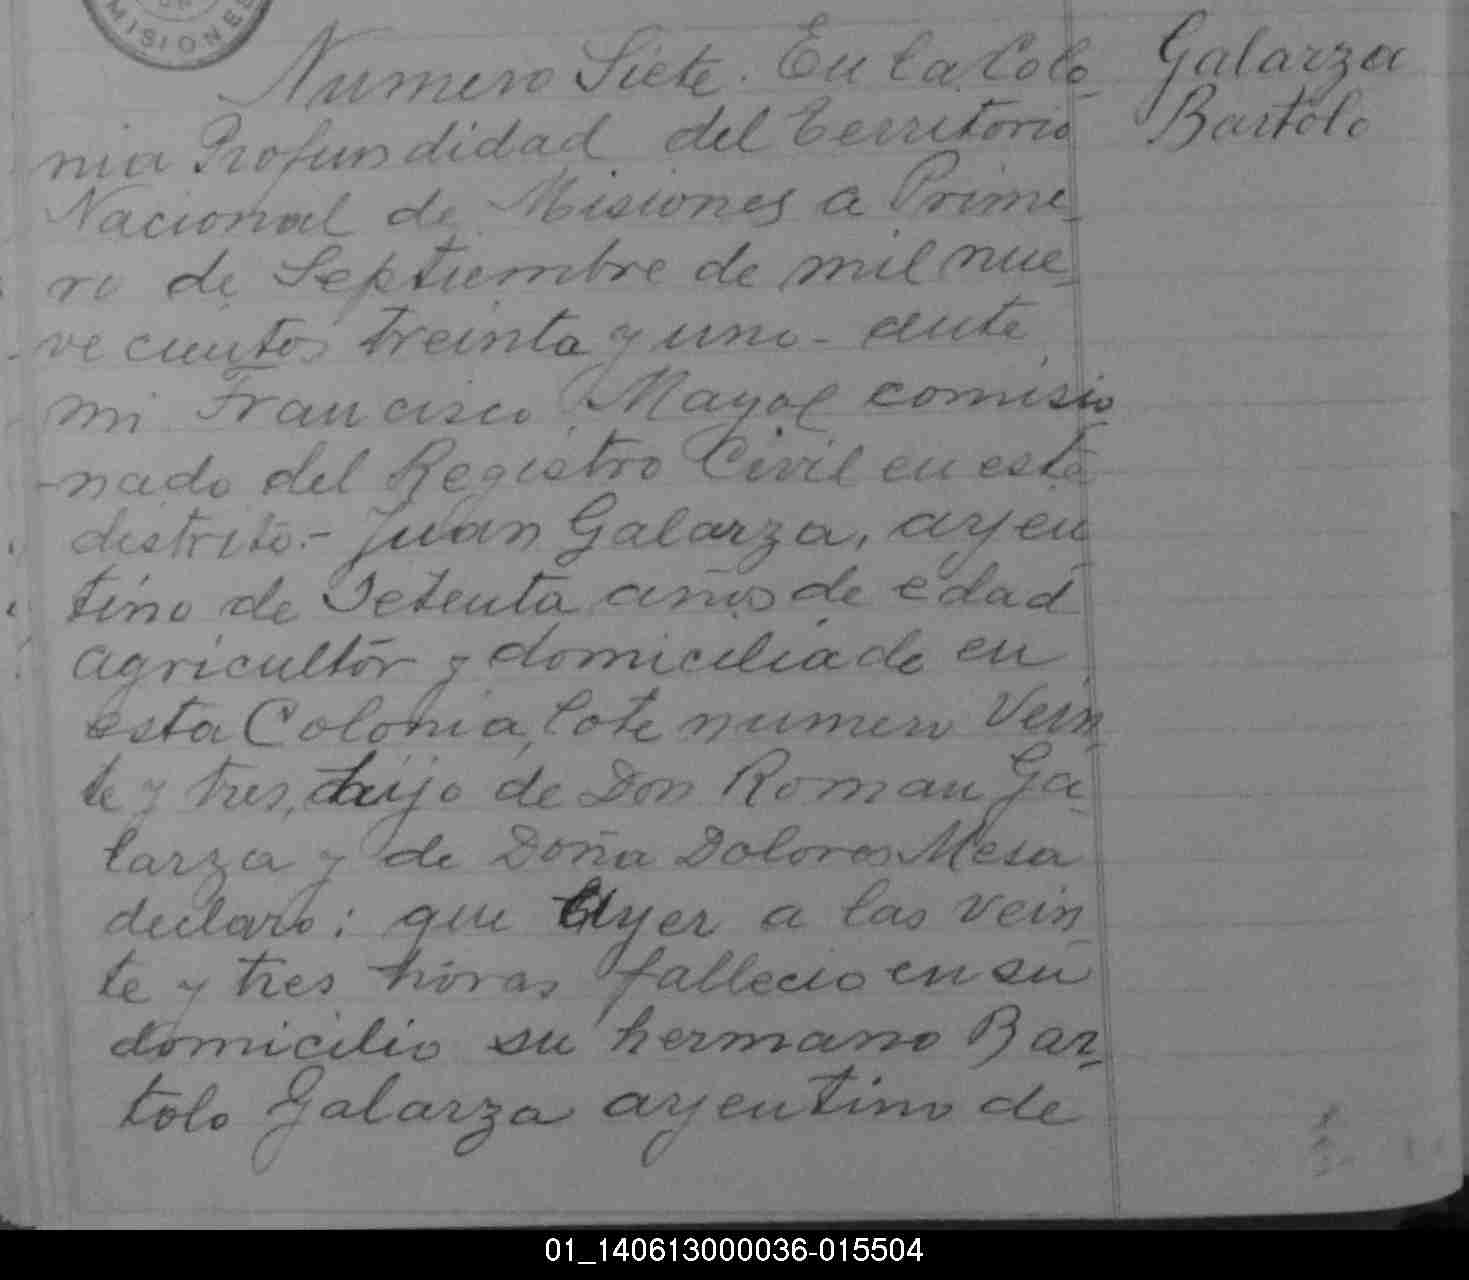 MISIONES
Numero Siete. En la Colo
Galarza
Bartolo
nia Profundidad del Territorio
Nacional de Misiones a Prime
ro de Septiembre de mil nue
ve cientos treinta y uno - ante
mi Francisco Mayol comisio
nado del Registro Civil en este
distrito.- Juan Galarza, argen
tino de Setenta años de edad
agricultor y domiciliado en
esta Colonia, lote numero Vein
te y tres, hijo de Don Roman Ga
larza y de Doña Dolores Mesa
declaro: que Ayer a las vein
te y tres horas fallecio en su
domicilio su hermano Bar
tolo Galarza argentino de
01_140613000036-015504